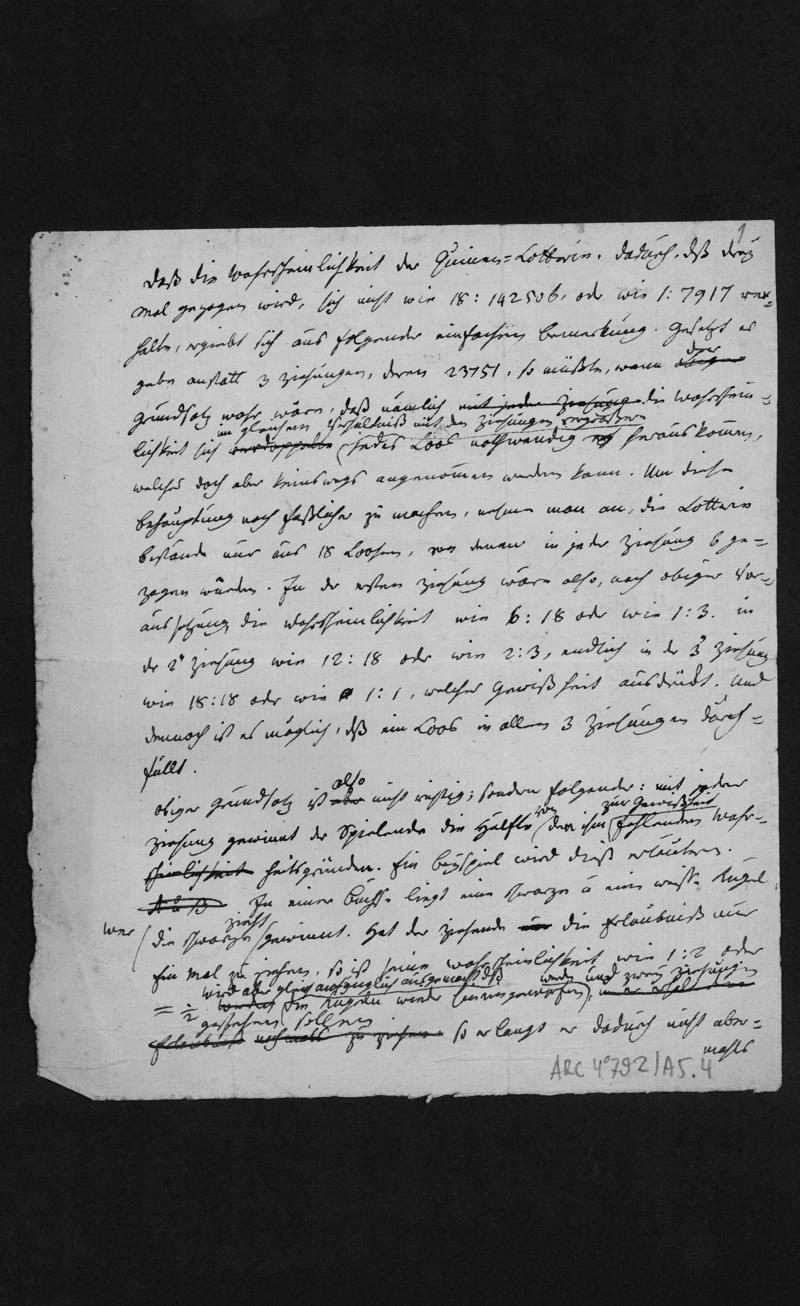 1
Daß die Wahrscheinlichkeit der Quinen-Lotterie, dadurch, dß drey
mal gezogen wird, sich nicht wie 18 : 142506, oder wie 1 : 7917 ver-
halte, ergiebt sich aus folgender einfachen Bemerkung. Gesetzt es
gebe anstatt 3 Ziehungen, deren 23751, so müßte, wenn obiger der
Grundsatz wahr wäre, daß nämlich mit jeder Ziehung die Wahrschein-
im gleichen Verhältniß mit den Ziehungen vergrößere
lichkeit sich verdoppele jedes Loos nothwendig herauskommen,
welches doch aber keinswegs angenommen werden kann. Um diese
Behauptung noch faßlicher zu machen, nehme man an, die Lotterie
bestände nur aus 18 Loosen, von denen in jeder Ziehung 6 ge-
zogen würden. In der ersten Ziehung wäre also, nach obiger Vor-
aussetzung die Wahrscheinlichkeit wie 6 : 18 oder wie 1 : 3. in
der 2t Ziehung wie 12 : 18 oder wie 2 : 3, endlich in der 3t Ziehung
wie 18 : 18 oder wie 1 : 1, welches Gewißheit ausdrückt. Und
dennoch ist es möglich, dß ein Loos in allen 3 Ziehungen durch-
fällt.
also
Obiger Grundsatz ist aber nicht richtig; sondern folgender: mit jeder
von zur Gewißheit
Ziehung gewinnt der Spielende die Hälfte den ihm fehlenden Wahr-
scheinlichkeit heitsgründen. Ein Beyspiel wird dieß erläutern.
In einer Büchse liegt eine schwarze u eine weisse Kugel.
wer zieht
die schwarze gewinnt. Hat der Ziehende nur die Erlaubniß nur
Ein mal zu ziehen, so ist seine Wahrscheinlichkeit wie 1 : 2 oder
wird aber gleich anfänglich ausgemacht, dß werde und zwey Ziehungen
= 1/2 werden die Kugeln wieder hineingeworfen,
geschehen sollen
Erlaubniß nochmals zu ziehen so erlangt er dadurch nicht aber-
mahls
ARC 4° 792/A5.4